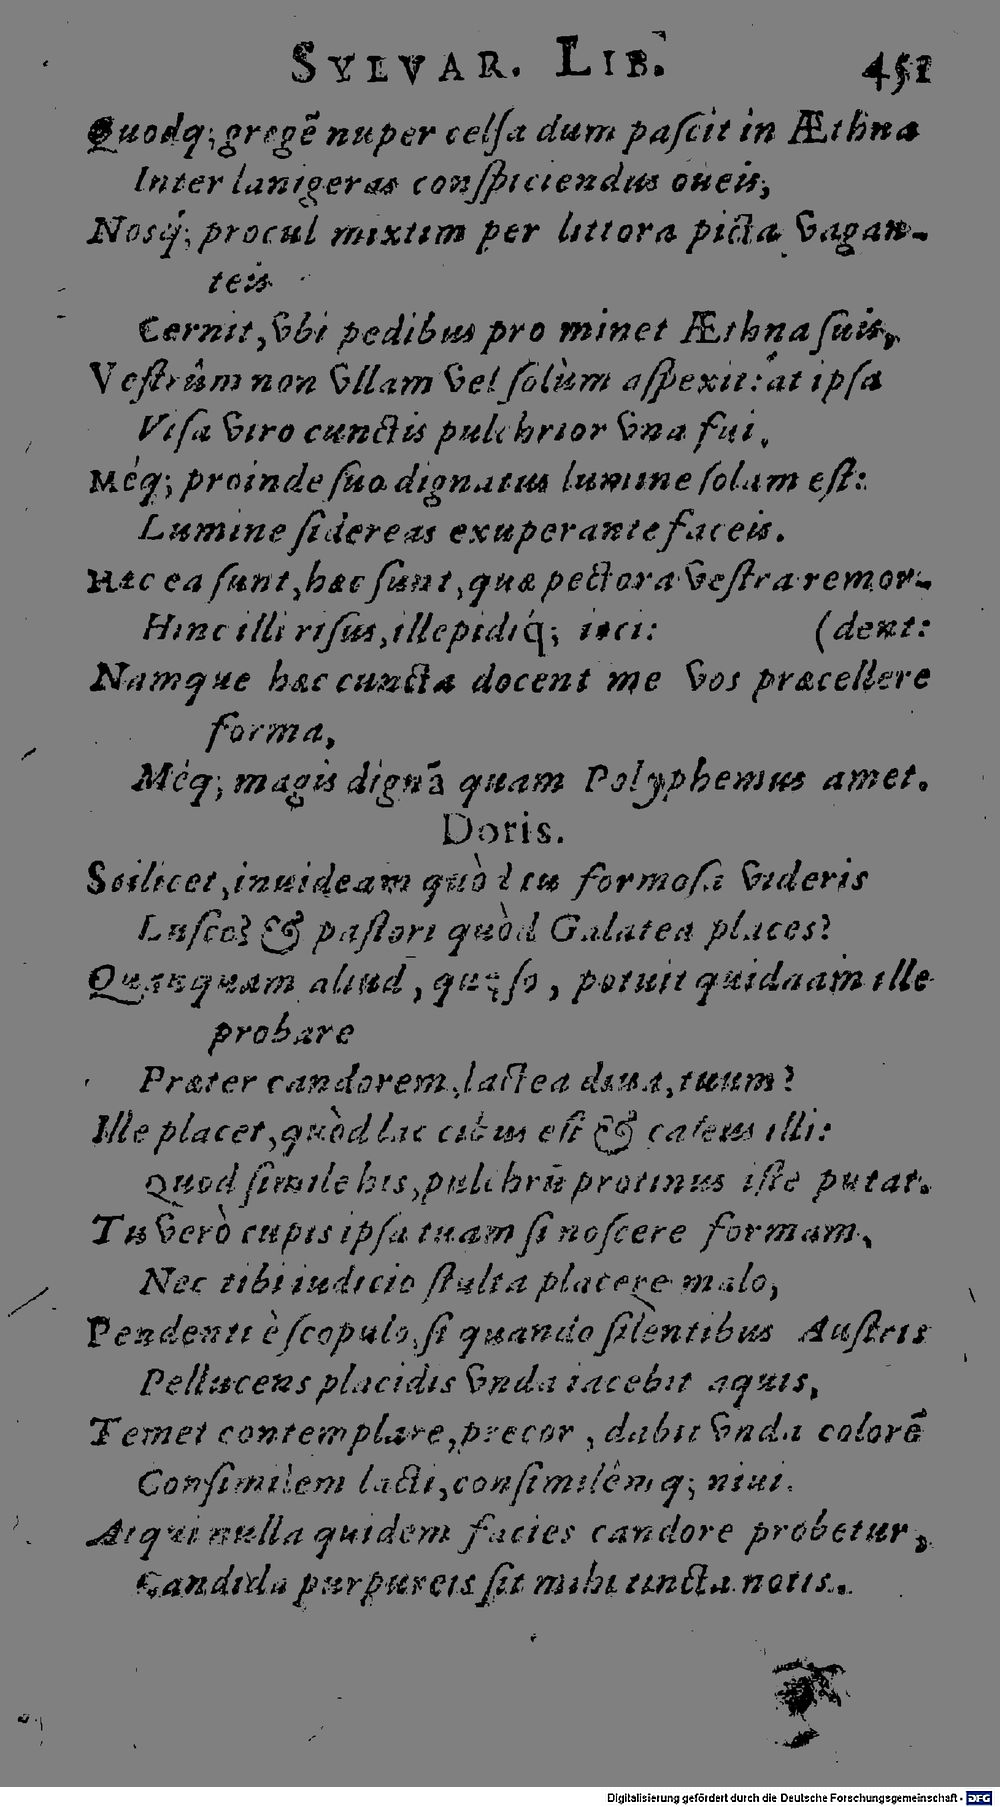 SYLVAR. LIB. 451
Quodq; gregẽ nuper celſa dum paſcit in Æthna
Inter lanigeras conſpiciendus oueis,
Nosq́; procul mixtim per littora picta vagan-
teis
Cernit, vbi pedibus pro minet Æthna ſuis,
Veſtrûm non vllam vel ſolùm aſpexit: at ipſa
Viſa viro cunctis pulchrior vna fui.
Méq; proinde ſuo dignatus lumine ſolam eſt:
Lumine ſidereas exuperante faceis.
Hæc ea ſunt, hæc ſunt, quæ pectora veſtra remor-
Hinc illi riſus, illepidiq́; ioci: (dent:
Namque hæc cuncta docent me vos præcellere
forma,
Méq; magis dignā quam Polyphemus amet.
Doris.
Scilicet, inuideam quòd tu formoſa videris
Luſco? & paſtori quòd Galatea places?
Quanquam aliud, quæſo, potuit quidnam ille
probare
Præter candorem, lactea diua, tuum?
Ille placet, quòd lac cibus eſt & caſeus illi:
Quod ſimile his, pulchrū protinus iſte putat.
Tu verò cupis ipſa tuam ſi noſcere formam,
Nec tibi iudicio ſtulta placere malo,
Pendenti è ſcopulo, ſi quando ſilentibus Auſtris
Pellucens placidis vnda iacebit aquis,
Temet contemplare, precor, dabit vnda colorẽ
Conſimilem lacti, conſimilêmq; niui.
Atqui nulla quidem facies candore probetur,
Candida purpureis ſit mihi tincta notis.
Digitalisierung gefördert durch die Deutsche Forschungsgemeinschaft - DFG